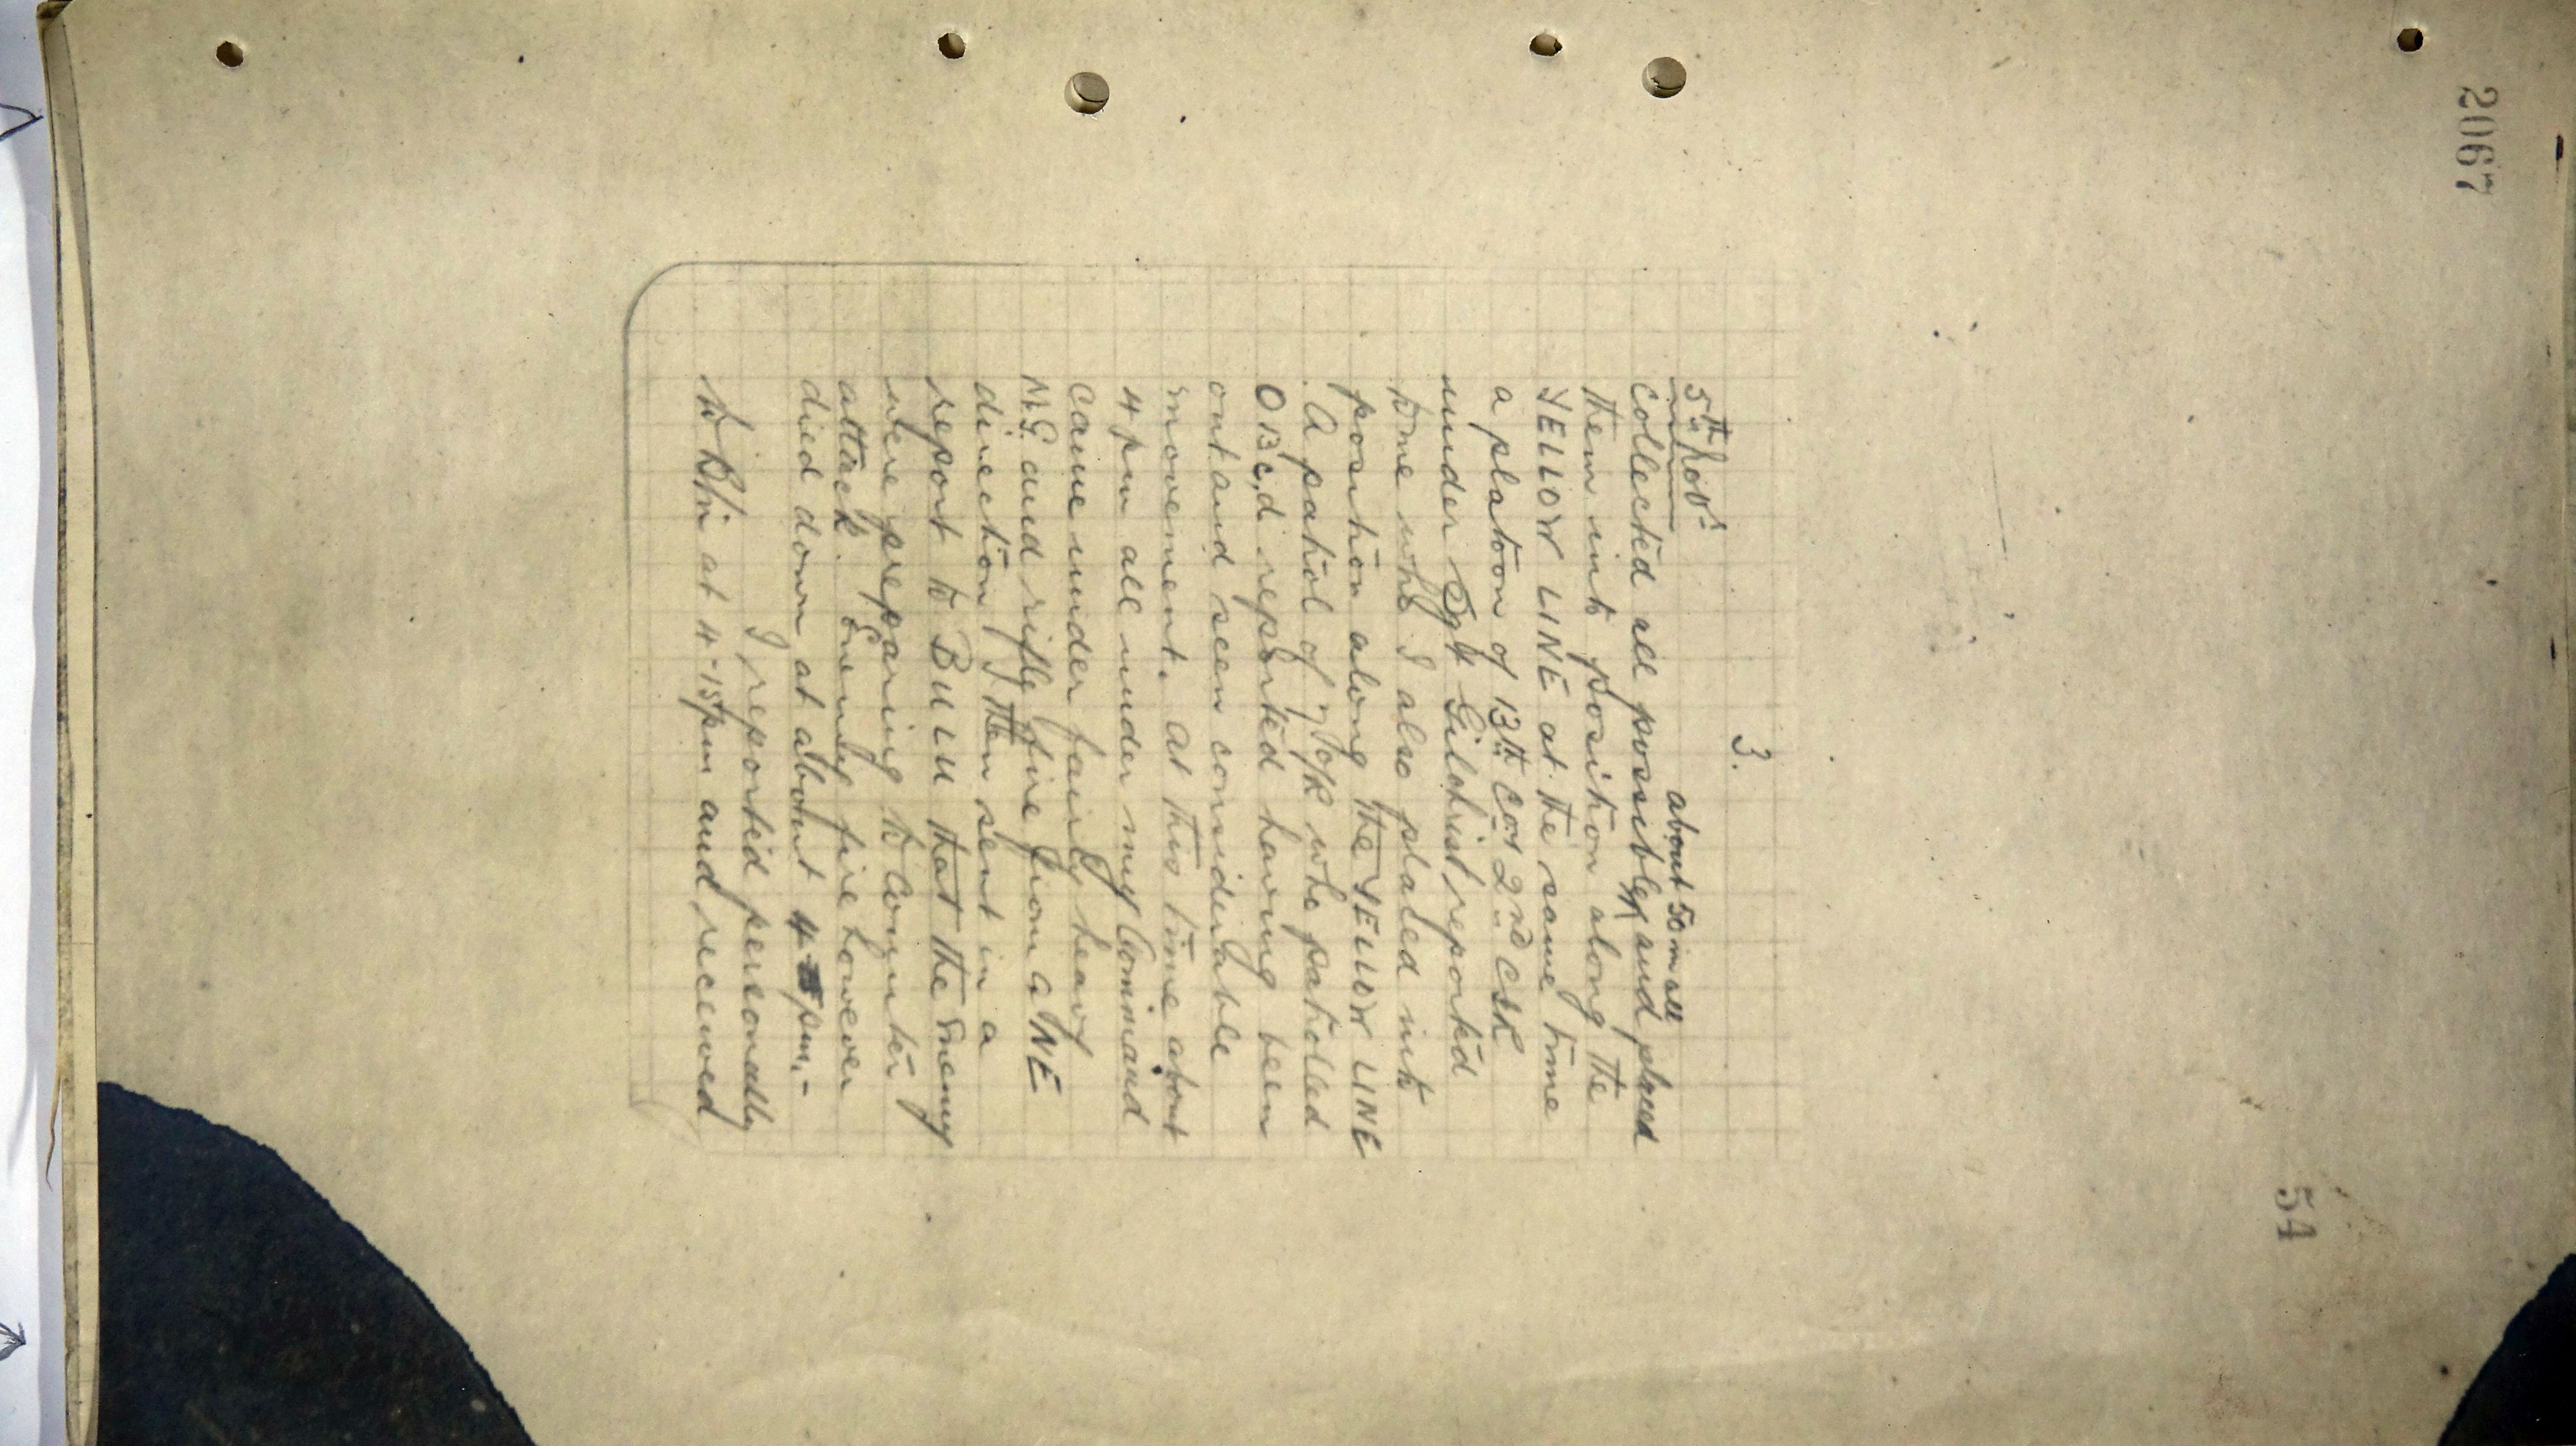 2067
54
3.
5th Novr
about 50 in all
Collected all possible and placed
them into position along the
YELLOW LINE at the same time
a platoon of 13th Coy 2nd CSR
under Sgt Gilchrist reported
to me who I also placed into
position along the YELLOW LINE
. A patrol of 7 Yorks who patrolled
O 13 c, d reported having been
out and seen considerable
movement. At this time about
4 pm all under my Command
came under fairly heavy
M.G. and rifle fire from a NE
direction I then sent in a
report to BULU that the Enemy
were preparing to Counter
attack. Enemy fire however
died down at about 4 pm.-
I reported personally
to Bn at 4-15 pm and received